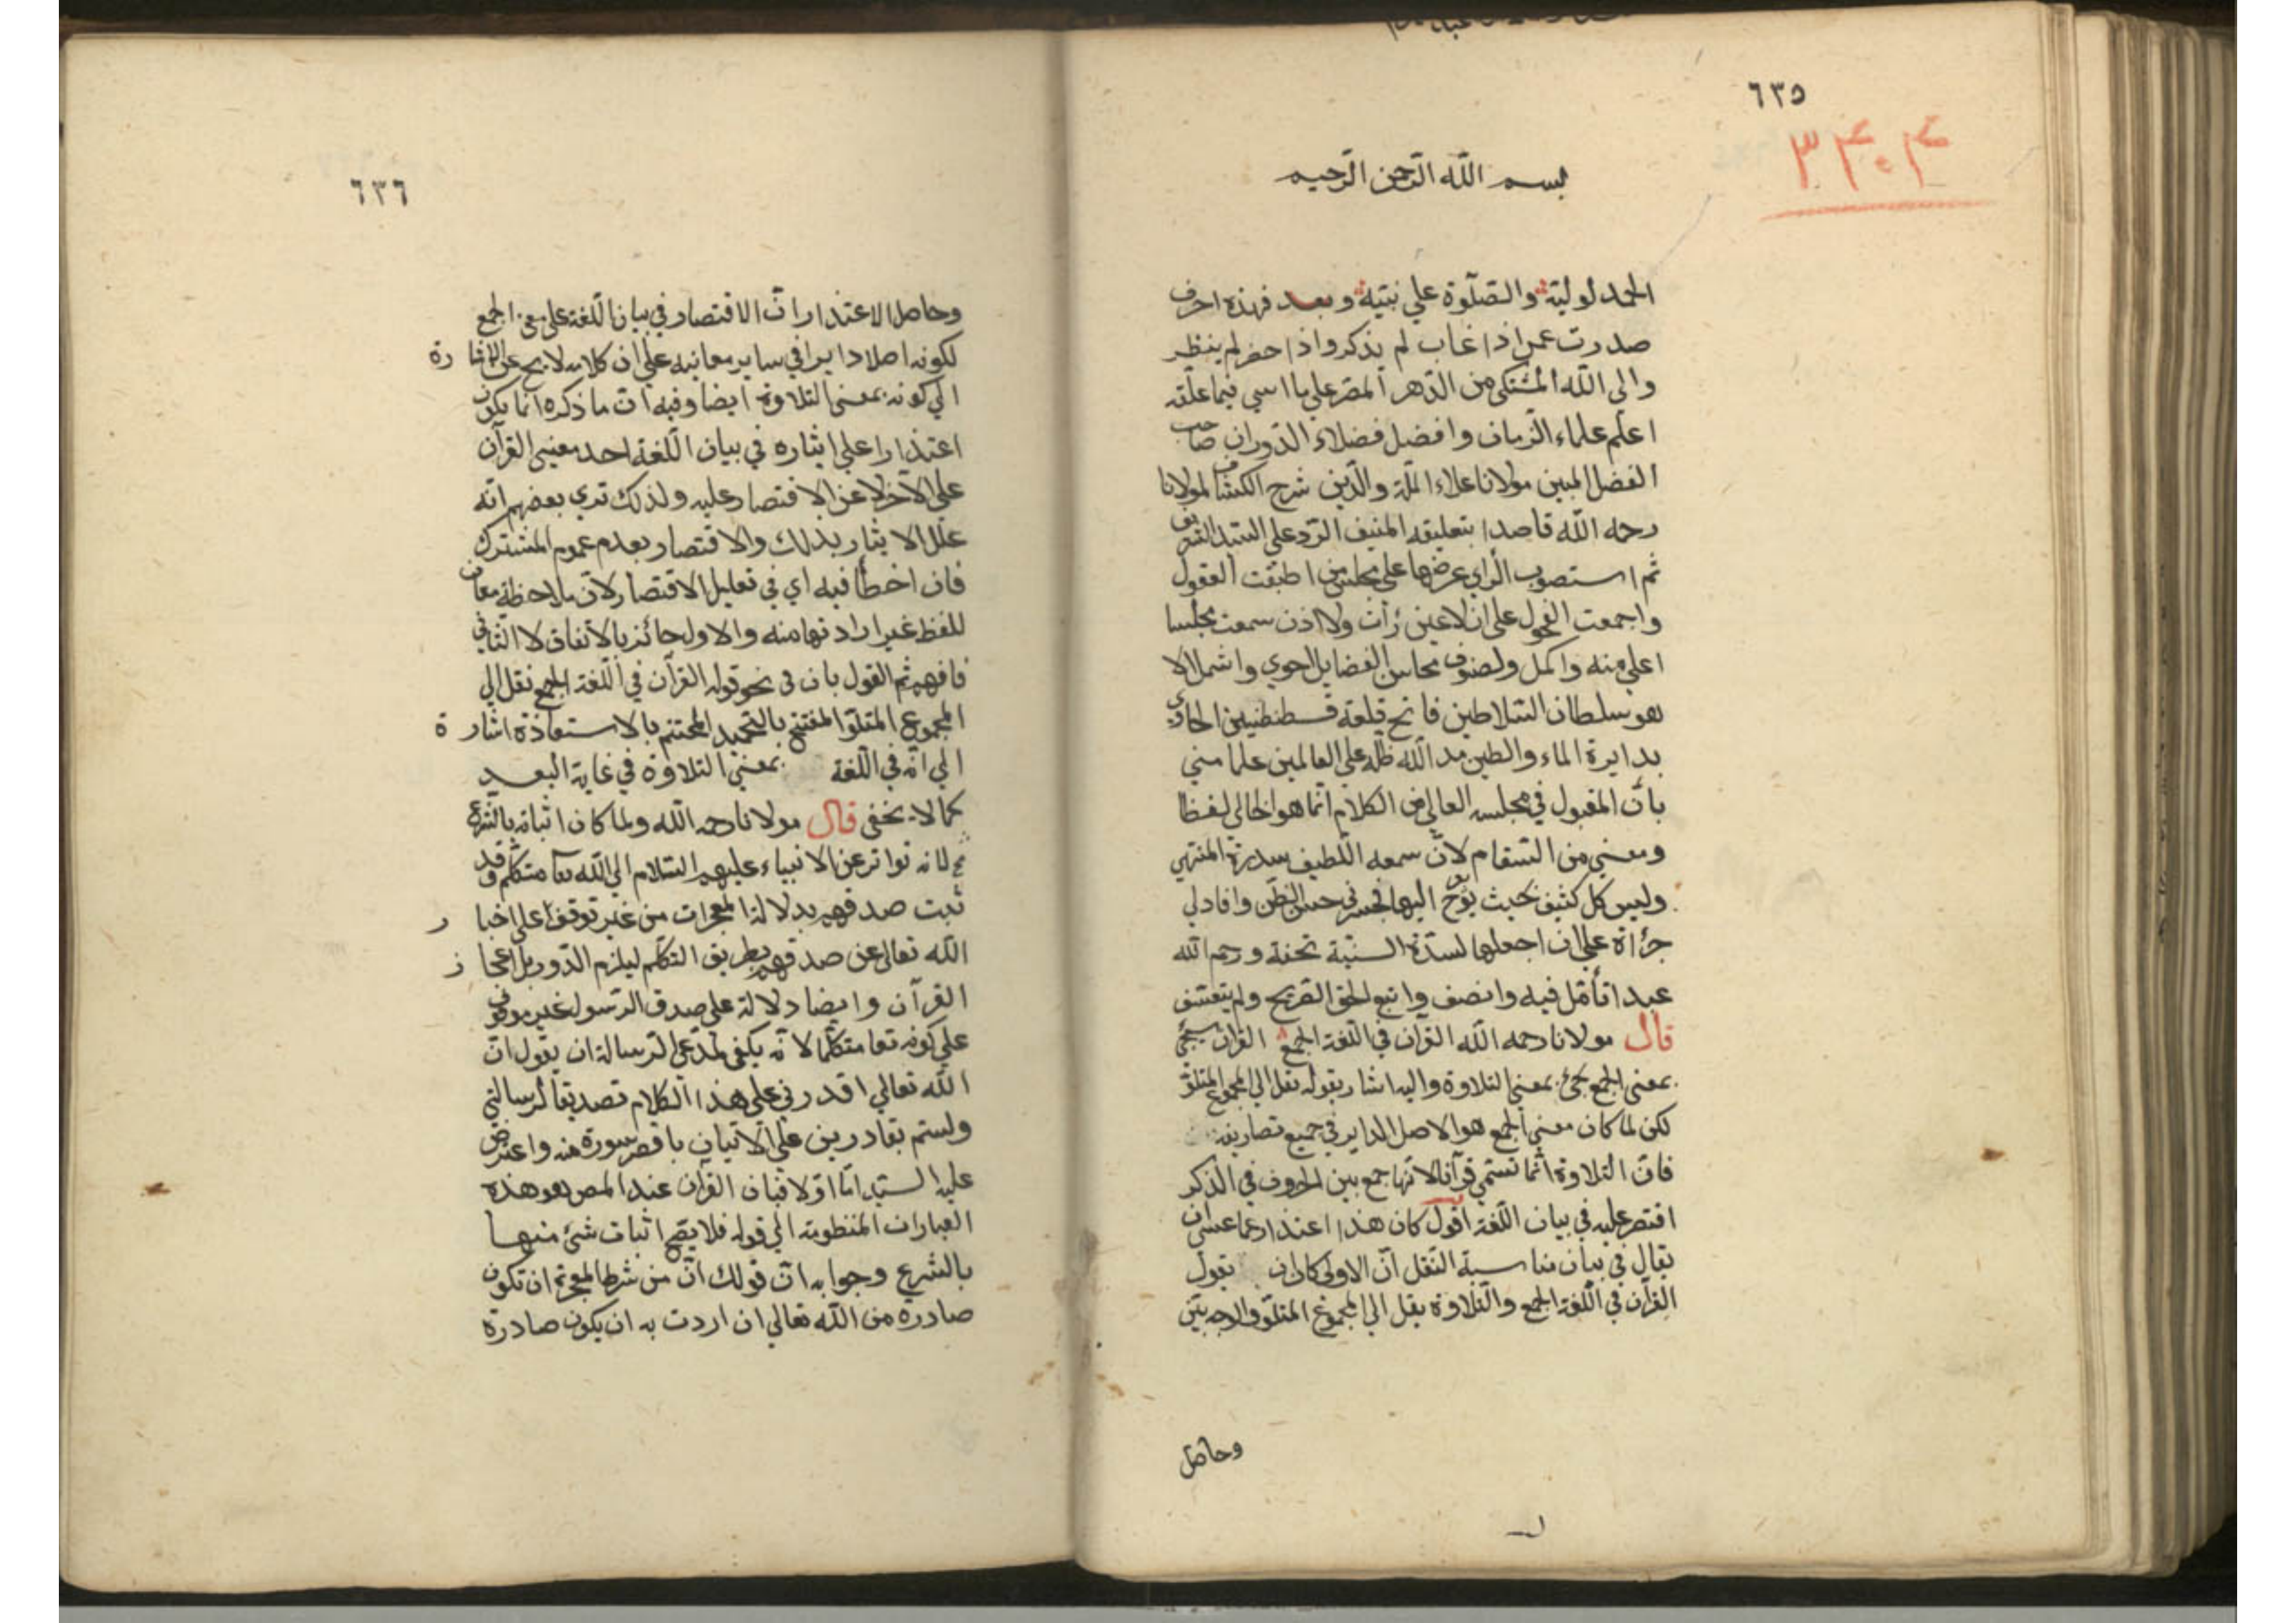 ٦٣٥
٣٤٠٤
بسم الله الرّحمن الرّحيم
الحمد لوليّه والصّلوة علي نبيّه وبعد فهذه احرف
صدرت عمن اذا غاب لم يذكر واذا حضر لم ينظر
والي الله المشتكي من الدّهر المصر علي ما اسي فيما علّقه
اعلم علماء الزمان وافضل فضلاء الدّوران صاحب
الفضل المبين مولانا علاء الملّة والدّين شرح الكشاف لمولانا
رحمه الله قاصدا بتعليقه المنيف الرّد علي السّيد الشريف
ثم استصوب الراي عرضها علي مجلس من اطبقت العقول
واجمعت الفحول علي ان لا عين رأت ولا اذن سمعت مجلسا
اعلي منه واكمل ولصنوف محاسن الفضايل احوي واشمل الا
هو سلطان السّلاطين فاتح قلعة قسطنطنين الحاوي
بدايرة الماء والطين مد الله ظلّه علي العالمين علما مني
بأن المقبول في مجلسه العالي من الكلام انّما هو الخالي لفظا
ومعني من السّقام لانّ سمعه اللّطيف سدرة المنتهي
وليس كل كثيف بحيث يؤخ اليها فجسرني حسن الظّن وافادلي
جرأة علي ان اجعلها لسدّة السنيّة تحفة ورحم الله
عبدا تأمّل فيه وانصف واتبع الحق الصّريح ولم يتعسّف
قال مولانا رحمه الله القرآن في اللّغة الجمع القرآن يجئ
بمعني الجمع يجئ بمعني التلاوة واليه اشار بقوله نقل الي المجموع المتلوّ
لكن لما كان معني الجمع هو الاصل الداير في جميع تصاريفه
فانّ التلاوة انّما تسمّي قرآنا لانّها جمع بين الحروف في الذكر
اقتصر عليه في بيان اللّغة اقول كان هذا اعتذار عما عسي ان
يقال في بيان مناسبة النّقل انّ الاولي كان ان يقول
القرآن في اللّغة الجمع والتّلاوة نقل الي المجموع المتلوّ
وحاصل
٦٣٦
وحاصل الاعتذار انّ الاقتصار في بيان اللّغة علي معني الجمع
لكونه اصلا دايرا في ساير معانيه علي ان كلامه لا يخ عن الاشارة
الي كونه بمعني التلاوة ايضا وفيه انّ ما ذكره انّما يكون
اعتذارا علي ايثاره في بيان اللّغة احد معنيي القرآن
علي الآخر لا عن الاقتصار عليه ولذلك تري بعضهم انّه
علّل الايثار بذلك والاقتصار بعدم عموم المشترك
فان اخطأ فيه اي في تعليل الاقتصار لانّ ملاحظة معان
للفظ غير ارادتها منه والاول جائز بالاتفاق لا الثّاني
فافهم ثم القول بان في نحو قوله القرآن في اللّغة الجمع نقل الي
المجموع المتلوّ المفتتح بالتحميد المختتم بالاستعاذة اشارة
الي انّه في اللّغة بمعني التلاوة في غاية البعد
كما لا يخفي قال مولانا رحمه الله ولما كان اثباته بالشّرع
لانه تواتر عن الانبياء عليهم السّلام انّ الله تعا متكلّم وقد
ثبت صدقهم بدلالة المعجزات من غير توقف علي اخبار
الله تعالي عن صدقهم بطريق التكلّم ليلزم الدّور بل اعجاز
القرآن وايضا دلالة علي صدق الرّسول غير موقوف
علي كونه تعا متكلّما لانّه يكفي لمدّعي الرسالة ان يقول انّ
الله تعالي اقدرني علي هذا الكلام تصديقا لرسالتي
ولستم بقادرين علي الاتيان باقصر سورة منه واعترض
عليه السيّد امّا اوّلا فبان القرآن عند المص هو هذه
العبارات المنظومة الي قوله فلا يصحّ اثبات شئ منها
بالشرع وجوابه انّ قولك انّ من شرط المعجزة ان تكون
صادرة من الله تعالي ان اردت به ان يكون صادرة